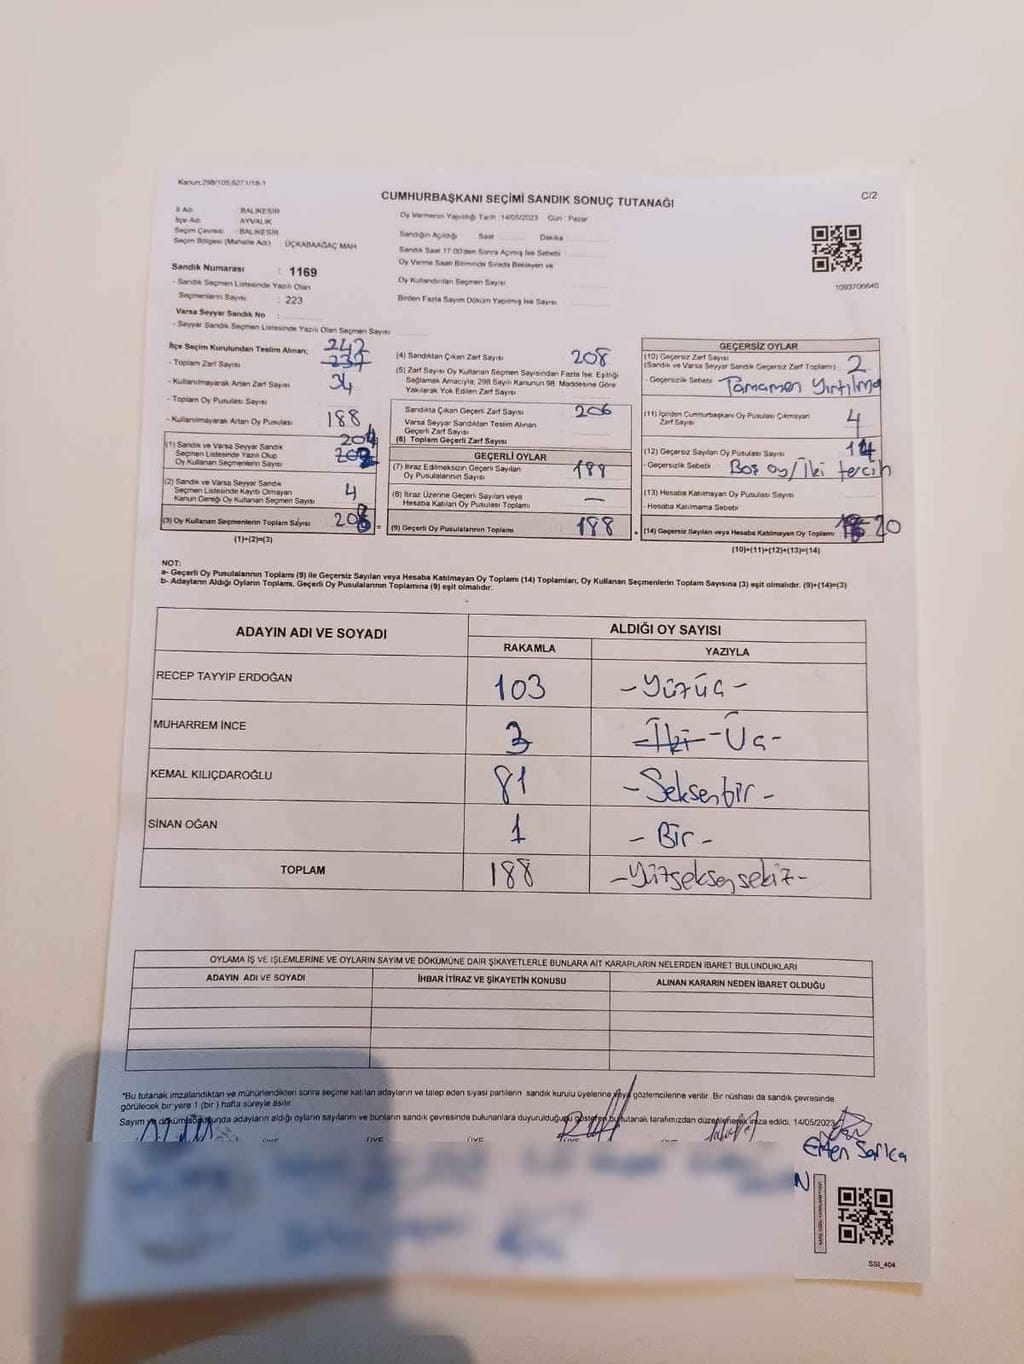 Kanun:298/105,6271/18-1
CUMHURBAŞKANI SEÇİMİ SANDIK SONUÇ TUTANAĞI
C/2
İli Adı : BALIKESİR
İlçe Adı : AYVALIK
Seçim Çevresi : BALIKESİR
Seçim Bölgesi (Mahalle Adı) : ÜÇKABAAĞAÇ MAH.
Oy Vermenin Yapıldığı Tarih 14/05/2023 Gün : Pazar
Sandığın Açıldığı Saat Dakika
Sandık Saat 17:00'den Sonra Açılmış İse Sebebi
Oy Verme Saati Bitiminde Sırada Bekleyen ve
Oy Kullandırılan Seçmen Sayısı
Birden Fazla Sayım Döküm Yapılmış İse Sayısı
1093709640
Sandık Numarası : 1169
- Sandık Seçmen Listesinde Yazılı Olan
Seçmenlerin Sayısı : 223
Varsa Seyyar Sandık No
- Seyyar Sandık Seçmen Listesinde Yazılı Olan Seçmen Sayısı
İlçe Seçim Kurulundan Teslim Alınan;
242
- Toplam Zarf Sayısı 237
- Kullanılmayarak Artan Zarf Sayısı 34
- Toplam Oy Pusulası Sayısı
- Kullanılmayarak Artan Oy Pusulası 188
(1) Sandık ve Varsa Seyyar Sandık
Seçmen Listesinde Yazılı Olup
Oy Kullanan Seçmenlerin Sayısı 204
(2) Sandık ve Varsa Seyyar Sandık
Seçmen Listesinde Kayıtlı Olmayan
Kanun Gereği Oy Kullanan Seçmen Sayısı 4
(3) Oy Kullanan Seçmenlerin Toplam Sayısı 208 =
(1)+(2)=(3)
(4) Sandıktan Çıkan Zarf Sayısı 208
(5) Zarf Sayısı Oy Kullanan Seçmen Sayısından Fazla İse, Eşitliği
Sağlamak Amacıyla, 298 Sayılı Kanunun 98. Maddesine Göre
Yakılarak Yok Edilen Zarf Sayısı
Sandıkta Çıkan Geçerli Zarf Sayısı 206
Varsa Seyyar Sandıktan Teslim Alınan
Geçerli Zarf Sayısı
(6) Toplam Geçerli Zarf Sayısı
GEÇERLİ OYLAR
(7) İtiraz Edilmeksizin Geçerli Sayılan
Oy Pusulalarının Sayısı 188
(8) İtiraz Üzerine Geçerli Sayılan veya
Hesaba Katılan Oy Pusulası Toplamı —
(9) Geçerli Oy Pusulalarının Toplamı 188 +
GEÇERSİZ OYLAR
(10) Geçersiz Zarf Sayısı
(Sandık ve Varsa Seyyar Sandık Geçersiz Zarf Toplamı) 2
- Geçersizlik Sebebi Tamamen Yırtılma
(11) İçinden Cumhurbaşkanı Oy Pusulası Çıkmayan
Zarf Sayısı 4
(12) Geçersiz Sayılan Oy Pusulası Sayısı 14
- Geçersizlik Sebebi Boş oy/İki tercih
(13) Hesaba Katılmayan Oy Pusulası Sayısı
- Hesaba Katılmama Sebebi
(14) Geçersiz Sayılan veya Hesaba Katılmayan Oy Toplamı 20
(10)+(11)+(12)+(13)=(14)
NOT:
a- Geçerli Oy Pusulalarının Toplamı (9) ile Geçersiz Sayılan veya Hesaba Katılmayan Oy Toplamı (14) Toplamları, Oy Kullanan Seçmenlerin Toplam Sayısına (3) eşit olmalıdır. (9)+(14)=(3)
b- Adayların Aldığı Oyların Toplamı, Geçerli Oy Pusulalarının Toplamına (9) eşit olmalıdır.
ADAYIN ADI VE SOYADI ALDIĞI OY SAYISI
RAKAMLA YAZIYLA
RECEP TAYYİP ERDOĞAN 103 -Yüzüç-
MUHARREM İNCE 3 -İki- -Üç-
KEMAL KILIÇDAROĞLU 81 -Seksenbir-
SİNAN OĞAN 1 -Bir-
TOPLAM 188 -Yüzseksensekiz-
OYLAMA İŞ VE İŞLEMLERİNE VE OYLARIN SAYIM VE DÖKÜMÜNE DAİR ŞİKAYETLERLE BUNLARA AİT KARARLARIN NELERDEN İBARET BULUNDUKLARI
ADAYIN ADI VE SOYADI İHBAR İTİRAZ VE ŞİKAYETİN KONUSU ALINAN KARARIN NEDEN İBARET OLDUĞU
*Bu tutanak imzalandıktan ve mühürlendikten sonra seçime katılan adayların ve talep eden siyasi partilerin sandık kurulu üyelerine veya gözlemcilerine verilir. Bir nüshası da sandık çevresinde
görülecek bir yere 1 (bir) hafta süreyle asılır.
Sayım ve dökümü sonucunda adayların aldığı oyların sayılarını ve bunların sandık çevresinde bulunanlara duyurulduğunu gösteren bu tutanak tarafımızdan düzenlenerek imza edildi. 14/05/2023
ÜYE ÜYE ÜYE ÜYE
Erten Sarıca
N
SSI_404